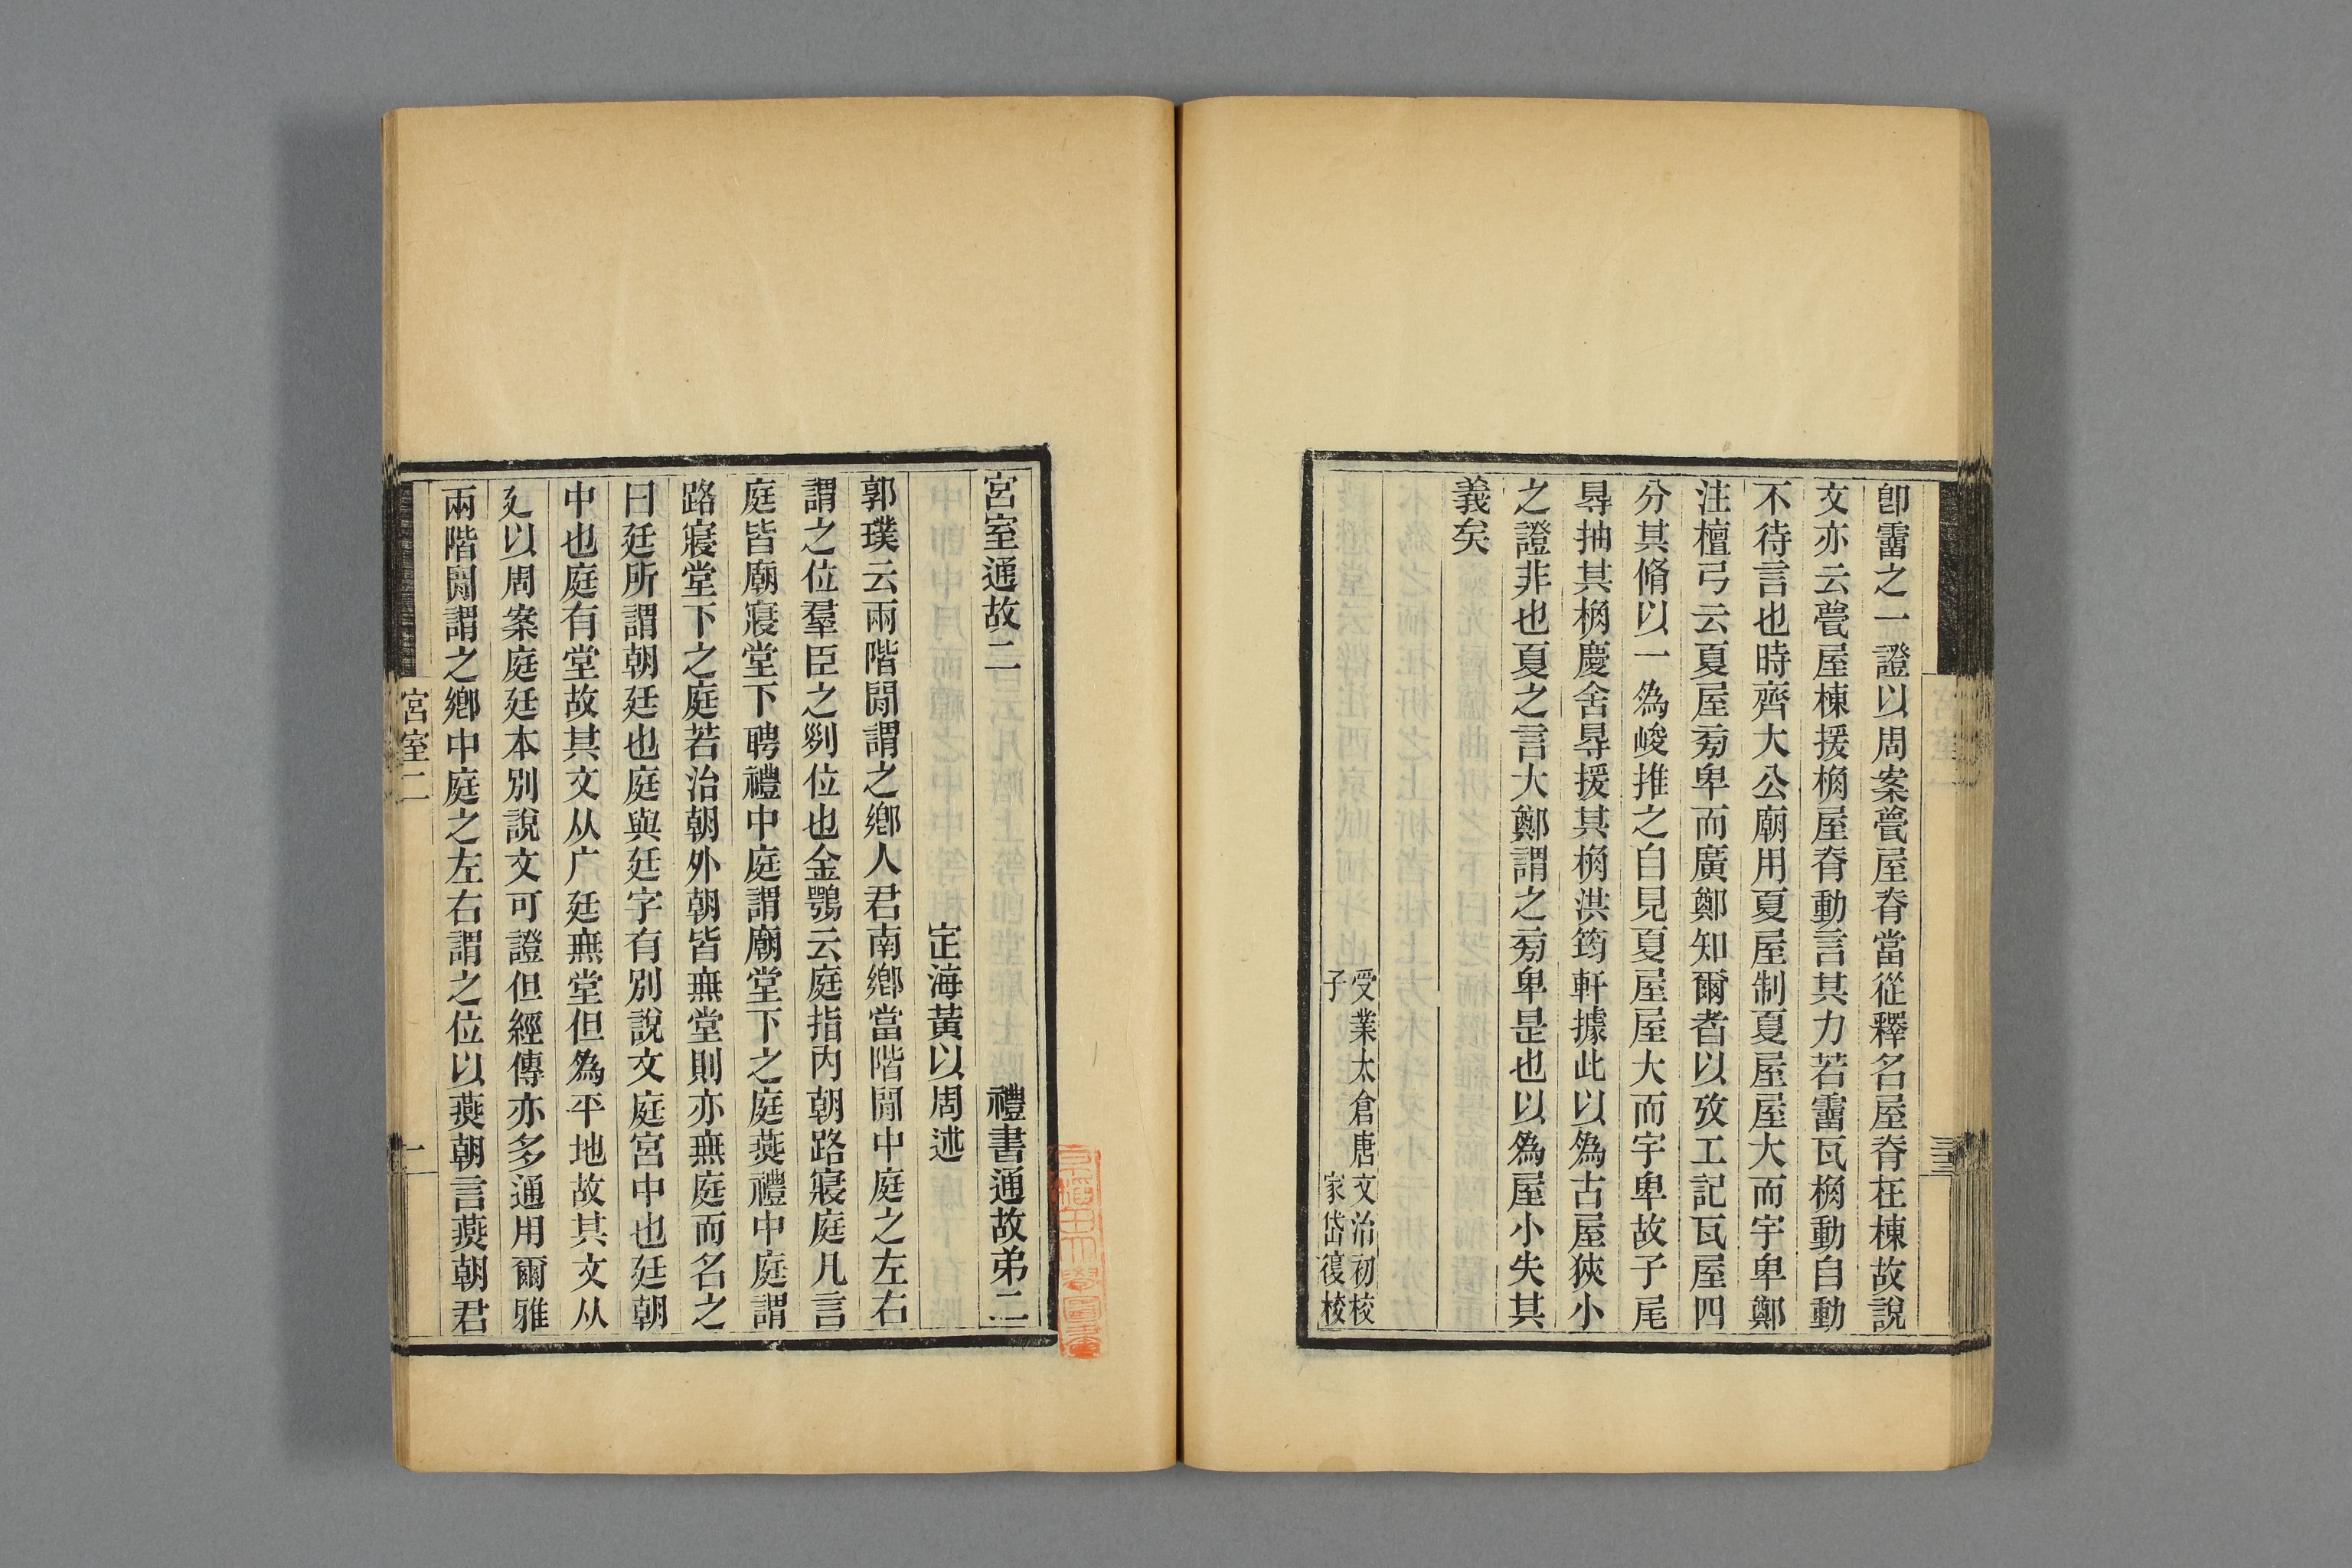 卽霤之一證以周案甍屋脊當從釋名屋脊在棟故說
文亦云甍屋棟援桷屋脊動言其力若霤瓦桷動自動
不待言也時齊大公廟用夏屋制夏屋屋大而宇卑鄭
注檀弓云夏屋㫄卑而廣鄭知爾者以攷工記瓦屋四
分其脩以一爲峻推之自見夏屋屋大而宇卑故子尾
㝵抽其桷慶舍㝵援其桷洪筠軒據此以爲古屋狹小
之證非也夏之言大鄭謂之㫄卑是也以爲屋小失其
義矣
受業太倉唐文治初校
子家岱復校
宮室通故二 禮書通故弟二
定海黃以周述
郭璞云兩階閒謂之鄕人君南鄕當階閒中庭之左右
謂之位羣臣之列位也金鶚云庭指內朝路寢庭凡言
庭皆廟寢堂下聘禮中庭謂廟堂下之庭燕禮中庭謂
路寢堂下之庭若治朝外朝皆無堂則亦無庭而名之
曰廷所謂朝廷也庭與廷字有別說文庭宮中也廷朝
中也庭有堂故其文从广廷無堂但爲平地故其文从
廴以周案庭廷本別說文可證但經傳亦多通用爾雅
兩階閒謂之鄕中庭之左右謂之位以燕朝言燕朝君
宮室二
一